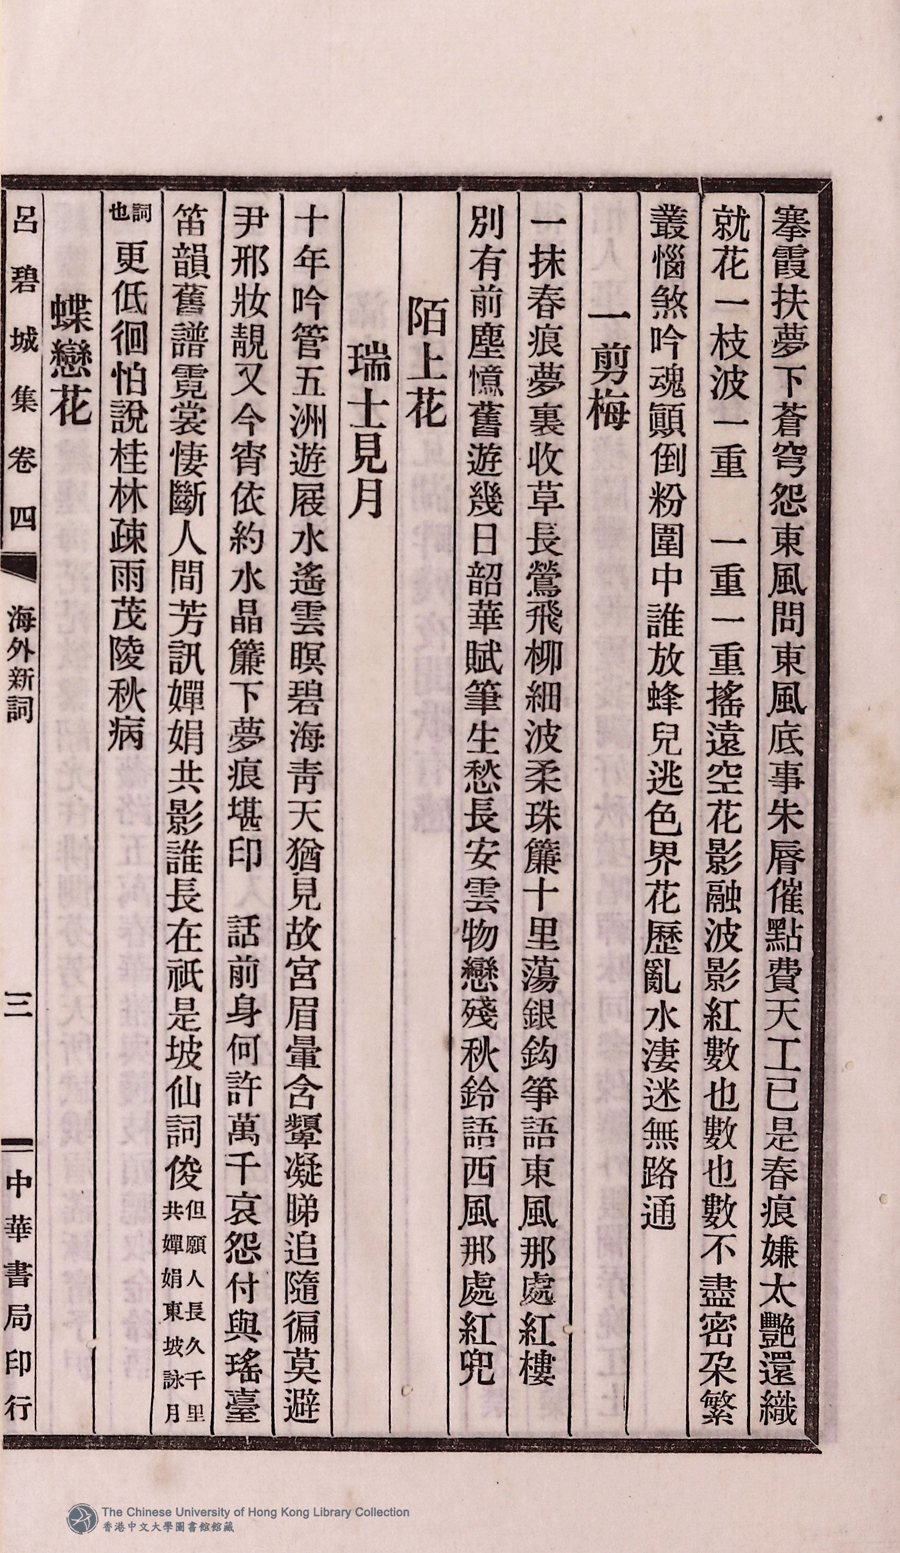 搴霞扶夢下蒼穹怨東風問東風底事朱脣催點費天工已是春痕嫌太艷還織
就花一枝波一重　一重一重搖遠空花影融波影紅數也數也數不盡密朶繁
叢惱煞吟魂顚倒粉圍中誰放蜂兒逃色界花歷亂水淒迷無路通
一剪梅
一抹春痕夢裏收草長鶯飛柳細波柔珠簾十里蕩銀鈎箏語東風那處紅樓
別有前塵憶舊遊幾日韶華賦筆生愁長安雲物戀殘秋鈴語西風那處紅兜
陌上花
瑞士見月
十年吟管五洲遊屐水遙雲暝碧海靑天猶見故宮眉暈含顰凝睇追隨徧莫避
尹邢妝靚又今宵依約水晶簾下夢痕堪印　話前身何許萬千哀怨付與瑤臺
笛韻舊譜霓裳悽斷人間芳訊嬋娟共影誰長在祇是坡仙詞俊但願人長久千里共嬋娟東坡詠月
詞也更低徊怕說桂林疎雨茂陵秋病
蝶戀花
呂碧城集　卷四　海外新詞　三　中華書局印行
The Chinese University of Hong Kong Library Collection
香港中文大學圖書館館藏